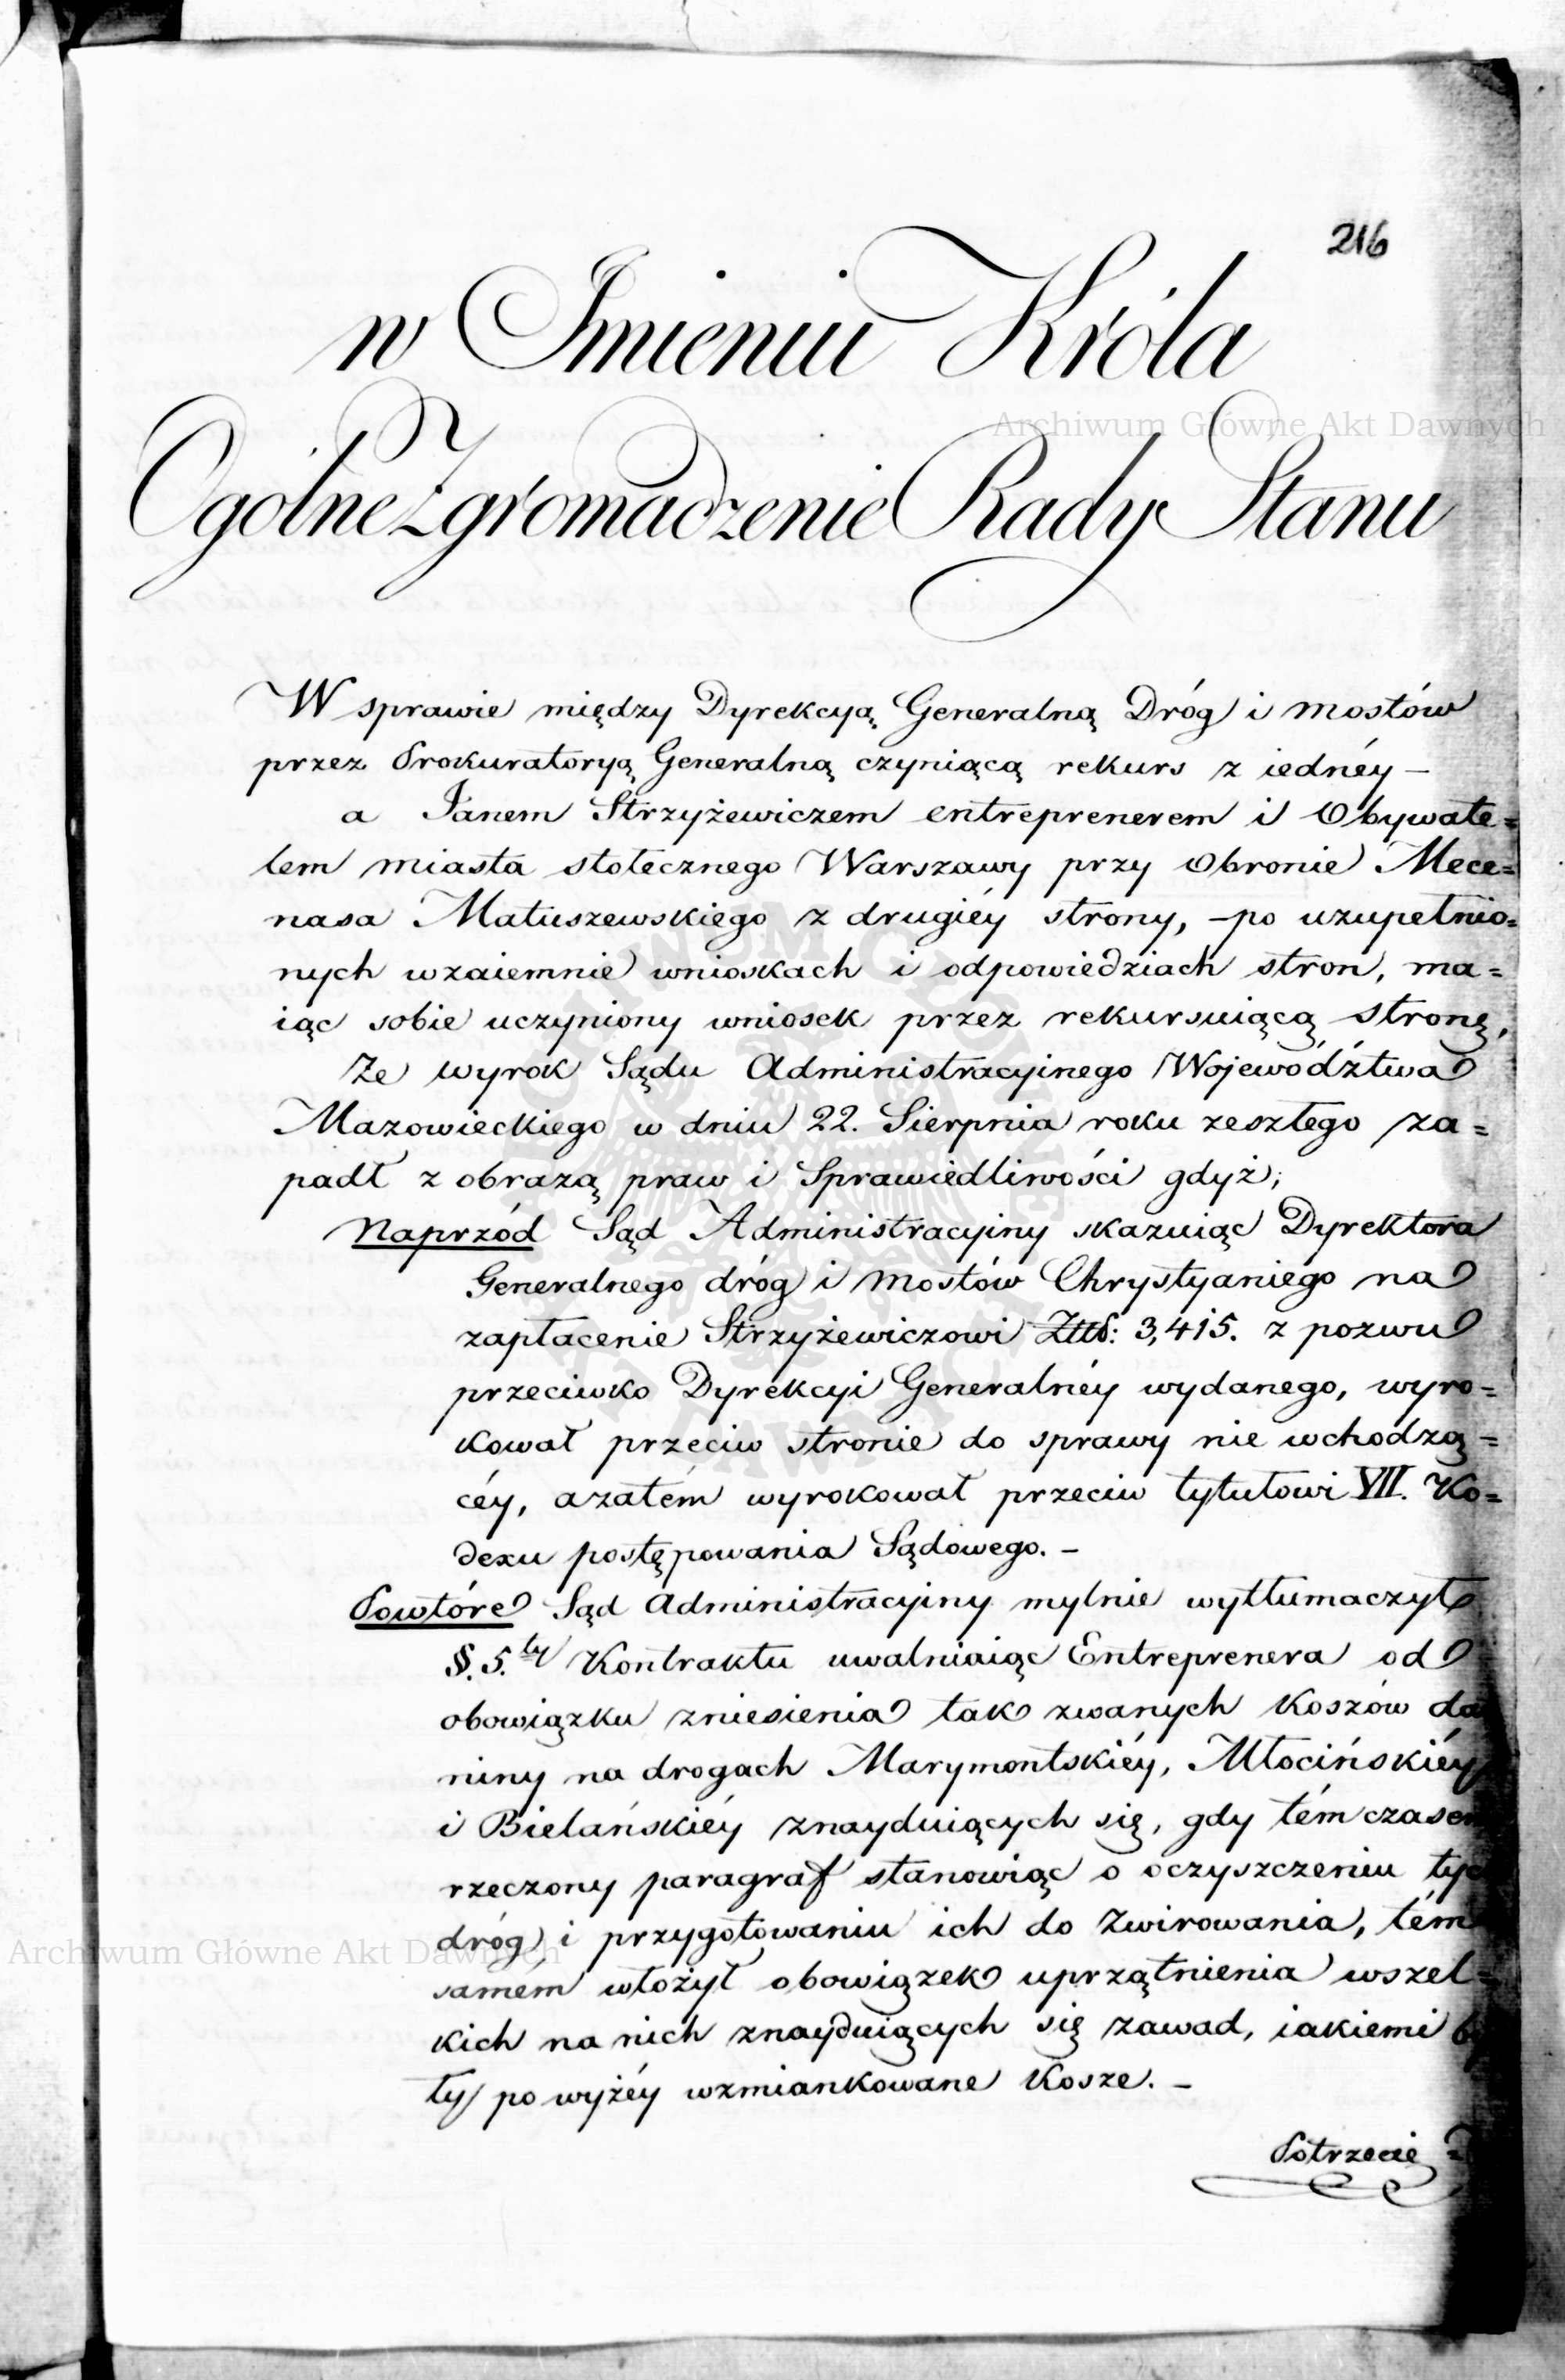 216
w Imieniu Króla
Ogólne Zgromadzenie Rady Stanu
W sprawie między Dyrekcyą Generalną Dróg i mostów
przez Prokuratoryą Generalną czyniącą rekurs z iednéy —
a Janem Strzyżewiczem entreprenerem i Obywate=
lem miasta stołecznego Warszawy przy Obronie Mece=
nasa Matuszewskiego z drugiéy strony, — po uzupełnio=
nych wzaiemnie wnioskach i odpowiedziach stron, ma=
iąc sobie uczyniony wniosek przez rekursuiącą stronę,
Że wyrok Sądu Administracyinego Województwa
Mazowieckiego w dniu 22. Sierpnia roku zeszłego za=
padł z obrazą praw i Sprawiedliwości gdyż;
Naprzód Sąd Administracyiny skazuiąc Dyrektora
Generalnego dróg i mostów Chrystyaniego na
zapłacenie Strzyżewiczowi Złtt: 3,415. z pozwu
przeciwko Dyrekcyi Generalnéy wydanego, wyro=
kował przeciw stronie do sprawy nie wchodzą=
céy, a zatém wyrokował przeciw tytułowi VII. Ko=
dexu postępowania Sądowego. —
Powtóre Sąd Administracyiny mylnie wytłumaczył
§. 5.ty Kontraktu uwalniaiąc Entreprenera od
obowiązku zniesienia tak zwanych Koszów da
niny na drogach Marymontskiéy, Młocińskiéy
i Bielańskiéy znayduiących się, gdy tém czasem
rzeczony paragraf stanowiąc o oczyszczeniu tyc
dróg i przygotowaniu ich do Żwirowania, tém
samém włożył obowiązek uprzątnienia wszel=
kich na nich znayduiących się zawad, iakiemi by
ły powyżéy wzmiankowane Kosze. —
Potrzecie =
Archiwum Główne Akt Dawnych
Archiwum Główne Akt Dawnych
ARCHIWUM GŁÓWNE AKT DAWNYCH